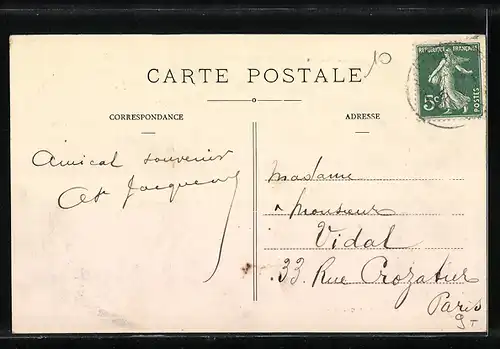 10
REPUBLIQUE FRANÇAISE
5c
POSTES
CARTE POSTALE
CORRESPONDANCE
ADRESSE
Amical souvenir
Madame
Monsieur
Vidal
33 Rue Crozatier
Paris